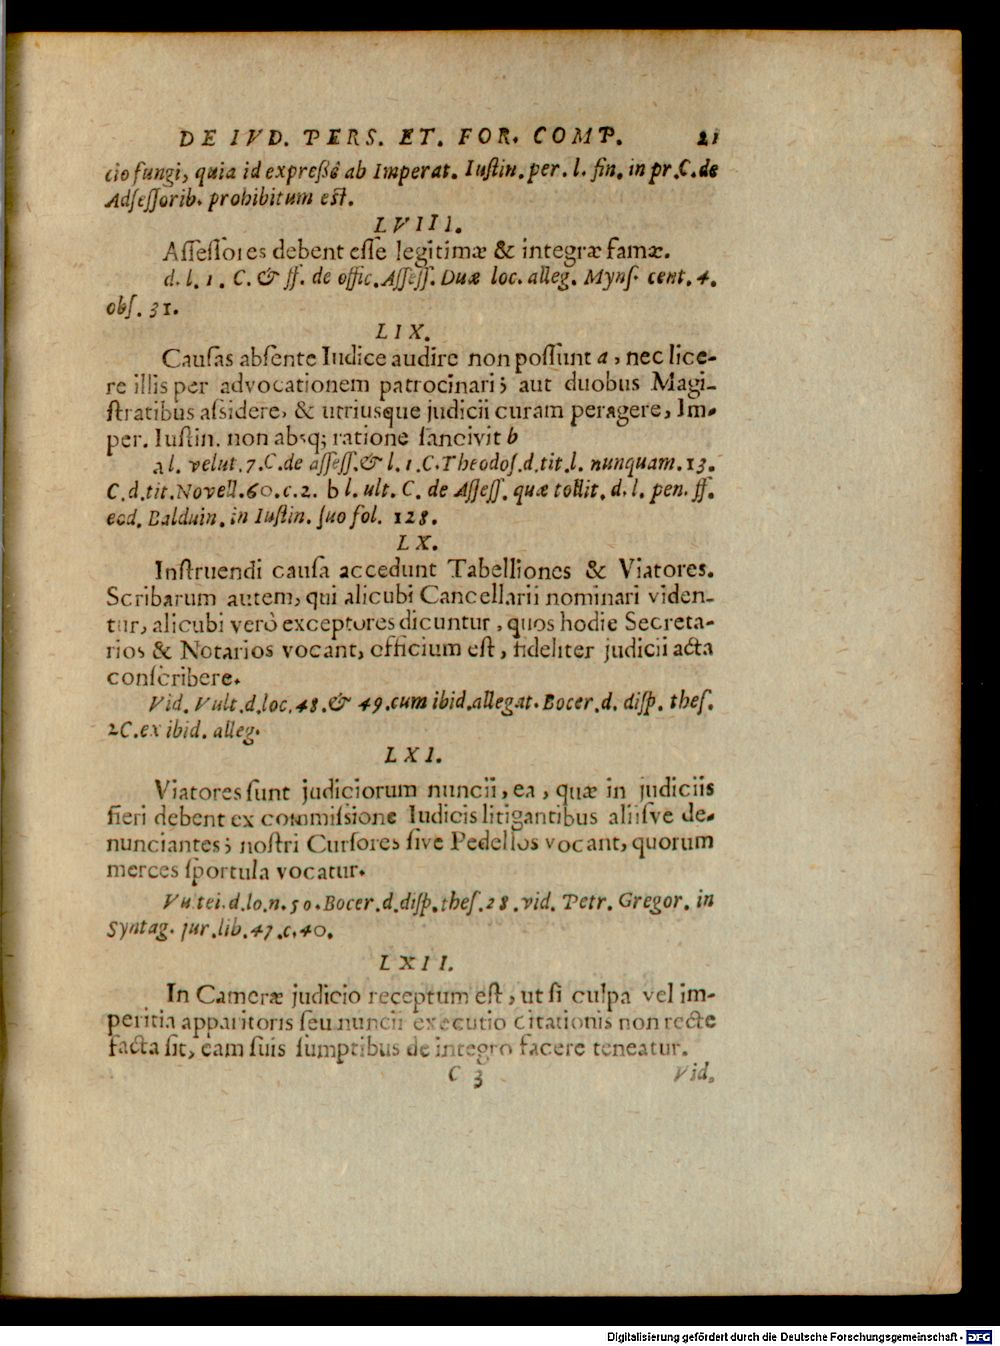 DE IVD. PERS. ET. FOR. COMP. 21
cio fungi, quia id expreßè ab Imperat. Iuſtin. per. l. fin. in pr. C. de
Adſeſſorib. prohibitum eſt.
LVIII.
Aſſeſſores debent eſſe legitimæ & integræ famæ.
d. l. 1. C. & ff. de offic. Aſſeſſ. Duæ loc. alleg. Mynſ. cent. 4.
obſ. 31.
LIX.
Cauſas abſente Iudice audire non poſſunt a, nec lice-
re illis per advocationem patrocinari; aut duobus Magi-
ſtratibus aſsidere, & utriusque judicii curam peragere, Im-
per. Iuſtin. non absq; ratione ſancivit b
a l. velut. 7. C. de aſſeſſ. & l. 1. C. Theodoſ. d. tit. l. nunquam. 13.
C. d. tit. Novell. 60. c. 2. b l. ult. C. de Aſſeſſ. quæ tollit. d. l. pen. ff.
eod. Balduin. in Iuſtin. ſuo fol. 128.
LX.
Inſtruendi cauſa accedunt Tabelliones & Viatores.
Scribarum autem, qui alicubi Cancellarii nominari viden-
tur, alicubi verò exceptores dicuntur, quos hodie Secreta-
rios & Notarios vocant, officium eſt, fideliter judicii acta
conſcribere.
Vid. Vult. d. loc. 48. & 49. cum ibid. allegat. Bocer. d. diſp. theſ.
2C. ex ibid. alleg.
LXI.
Viatores ſunt judiciorum nuncii, ea, quæ in judiciis
fieri debent ex commiſsione Iudicis litigantibus aliiſve de-
nunciantes; noſtri Curſores ſive Pedellos vocant, quorum
merces ſportula vocatur.
Vultei. d. lo. n. 50. Bocer. d. diſp. theſ. 28. vid. Petr. Gregor. in
Syntag. jur. lib. 47. c. 40.
LXII.
In Cameræ judicio receptum eſt, ut ſi culpa vel im-
peritia apparitoris ſeu nuncii executio citationis non recte
facta ſit, eam ſuis ſumptibus de integro facere teneatur.
C 3 Vid.
Digitalisierung gefördert durch die Deutsche Forschungsgemeinschaft - DFG